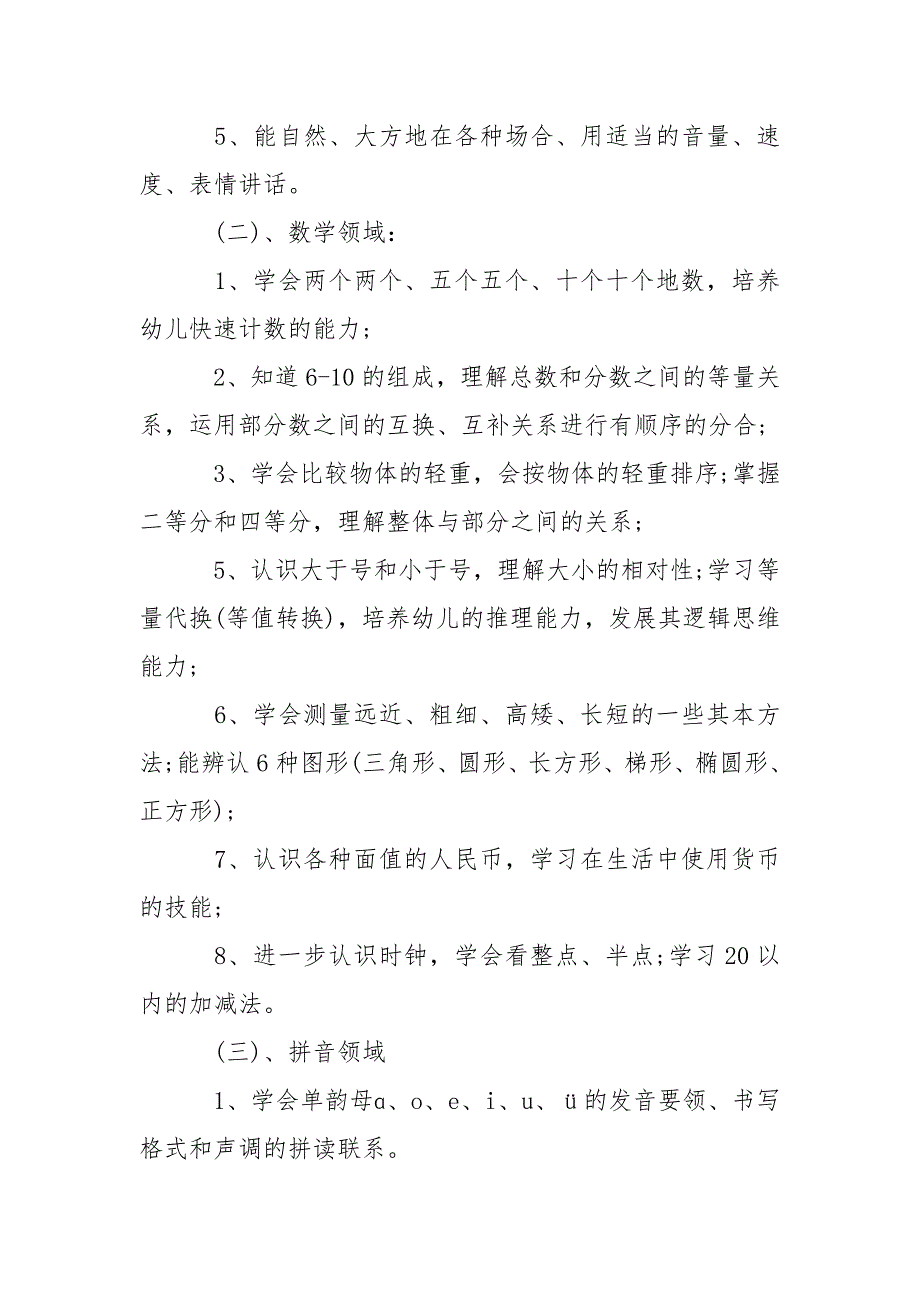 5、能自然、大方地在各种场合、用适当的音量、速
度、表情讲话。
(二)、数学领域：
1、学会两个两个、五个五个、十个十个地数，培养
幼儿快速计数的能力;
2、知道6-10的组成，理解总数和分数之间的等量关
系，运用部分数之间的互换、互补关系进行有顺序的分合;
3、学会比较物体的轻重，会按物体的轻重排序;掌握
二等分和四等分，理解整体与部分之间的关系;
5、认识大于号和小于号，理解大小的相对性;学习等
量代换(等值转换)，培养幼儿的推理能力，发展其逻辑思维
能力;
6、学会测量远近、粗细、高矮、长短的一些其本方
法;能辨认6种图形(三角形、圆形、长方形、梯形、椭圆形、
正方形);
7、认识各种面值的人民币，学习在生活中使用货币
的技能;
8、进一步认识时钟，学会看整点、半点;学习20以
内的加减法。
(三)、拼音领域
1、学会单韵母ɑ、o、e、i、u、ü的发音要领、书写
格式和声调的拼读联系。